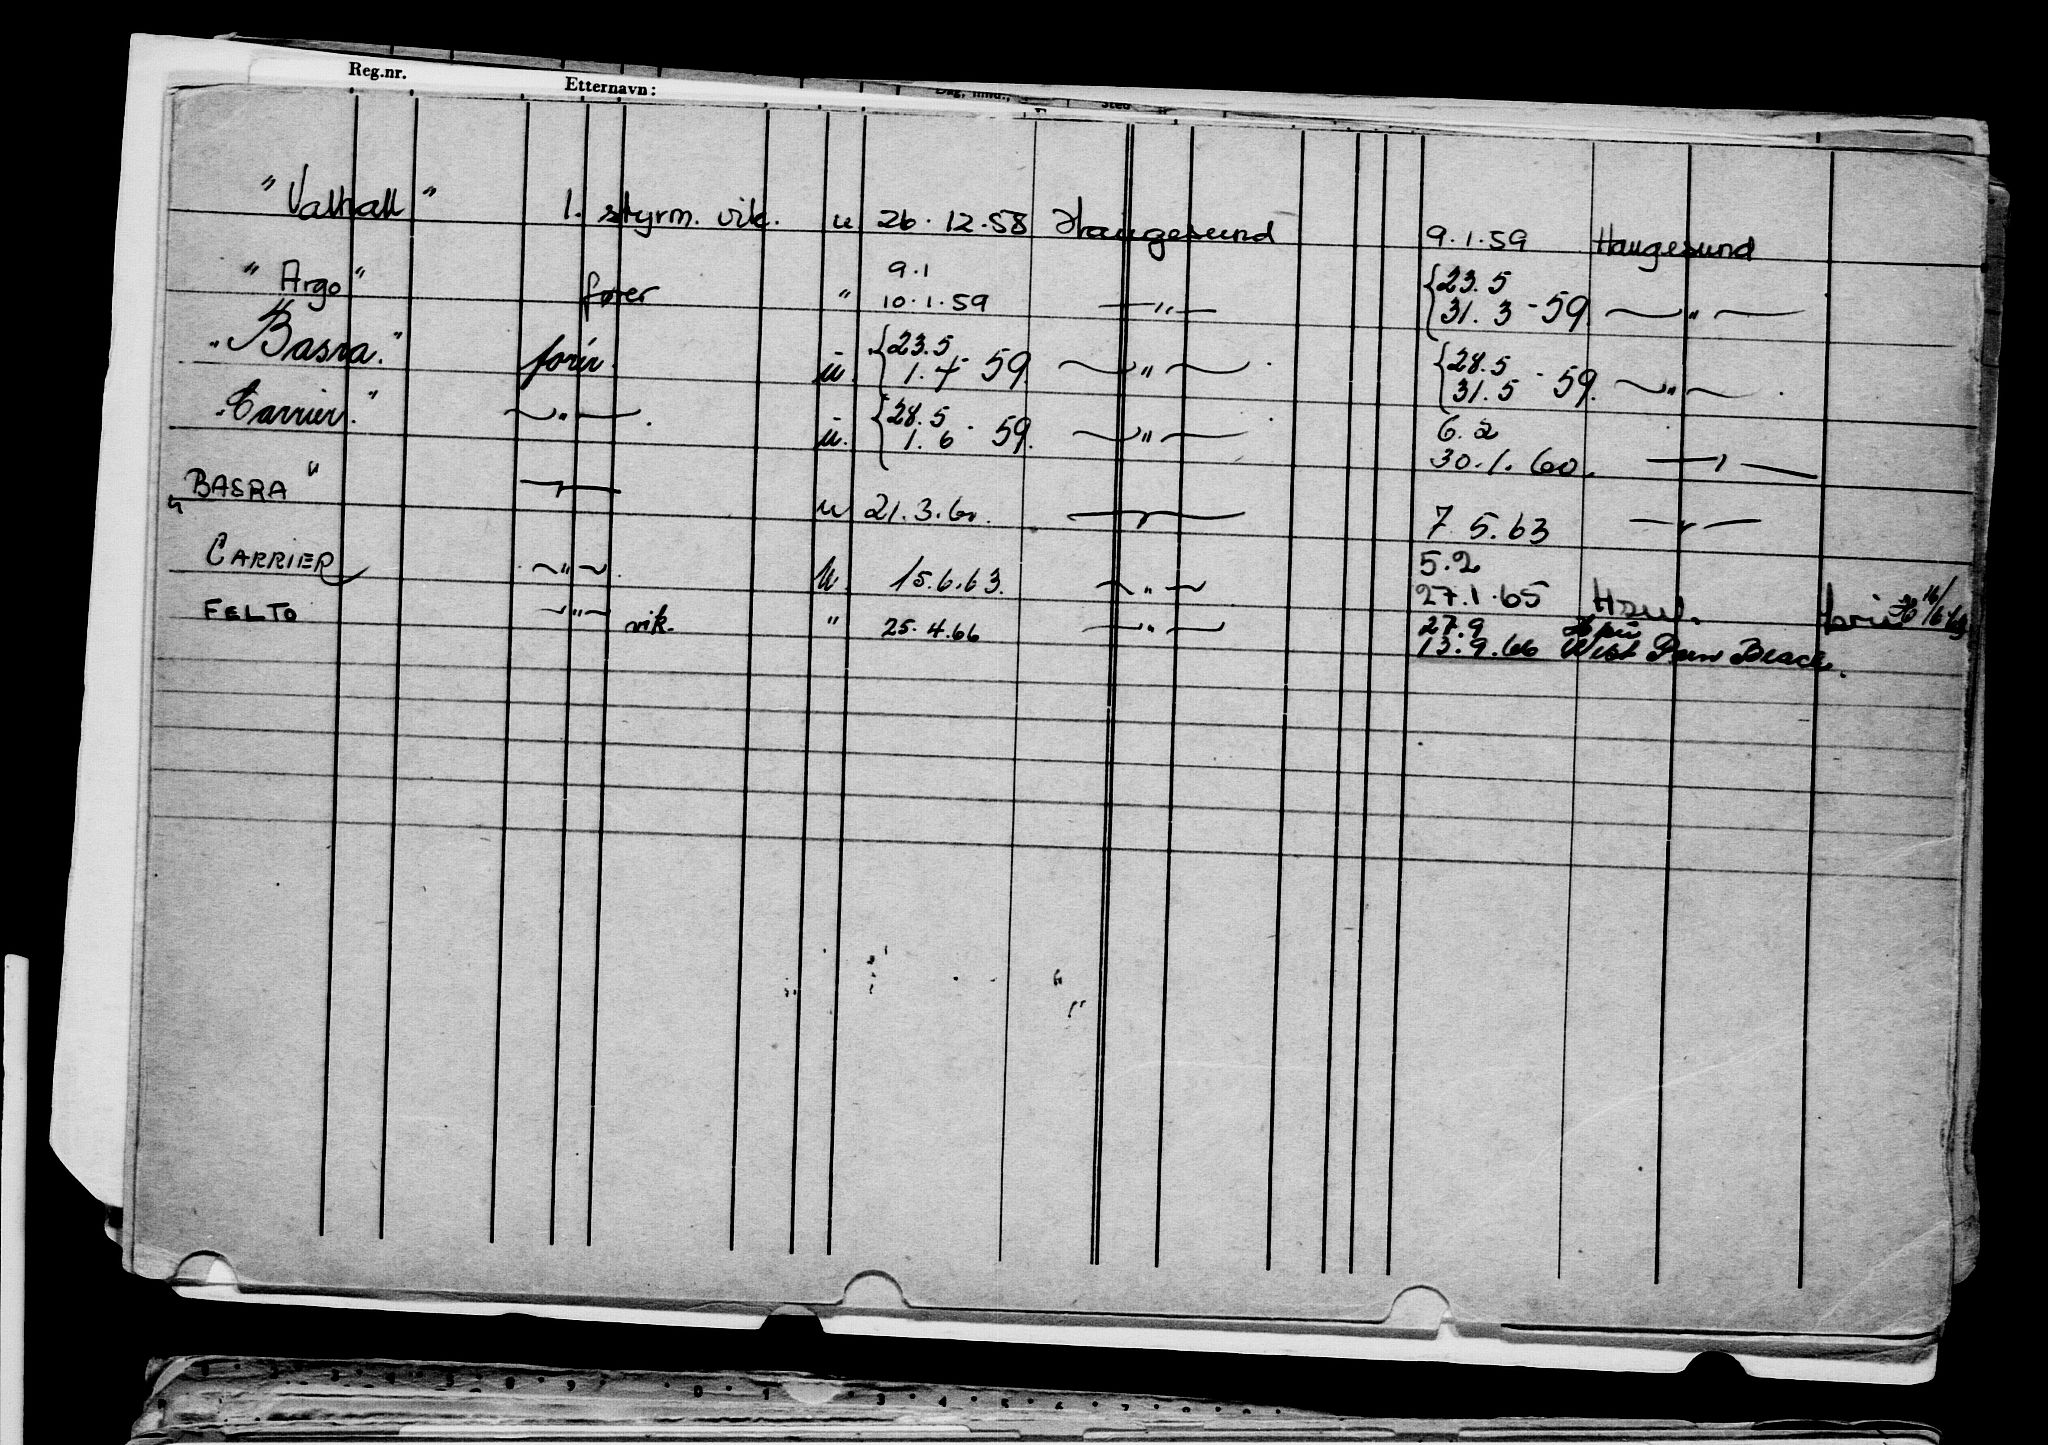 Reg.nr. Etternavn:
"Valhall" 1. styrm. vik. u 26.12.58 Haugesund 9.1.59 Haugesund
9.1 {23.5
"Argo" fører " 10.1.59 —"— 31.3-59 —"—
{23.5 {28.5
"Basra." förer. u. 1.4-59. —"— 31.5-59. —"—.
{28.5 6.2
"Carrier." —"—. u. 1.6-59. —"— 30.1.60. —"—
"BASRA" —"— u 21.3.60. —"— 7.5.63 —"—
5.2
CARRIER —"— u. 15.6.63. —"— 27.1.65 Hsud.
27.9
FELTO —"— vik. " 25.4.66 —"— 13.9.66 West Beach.